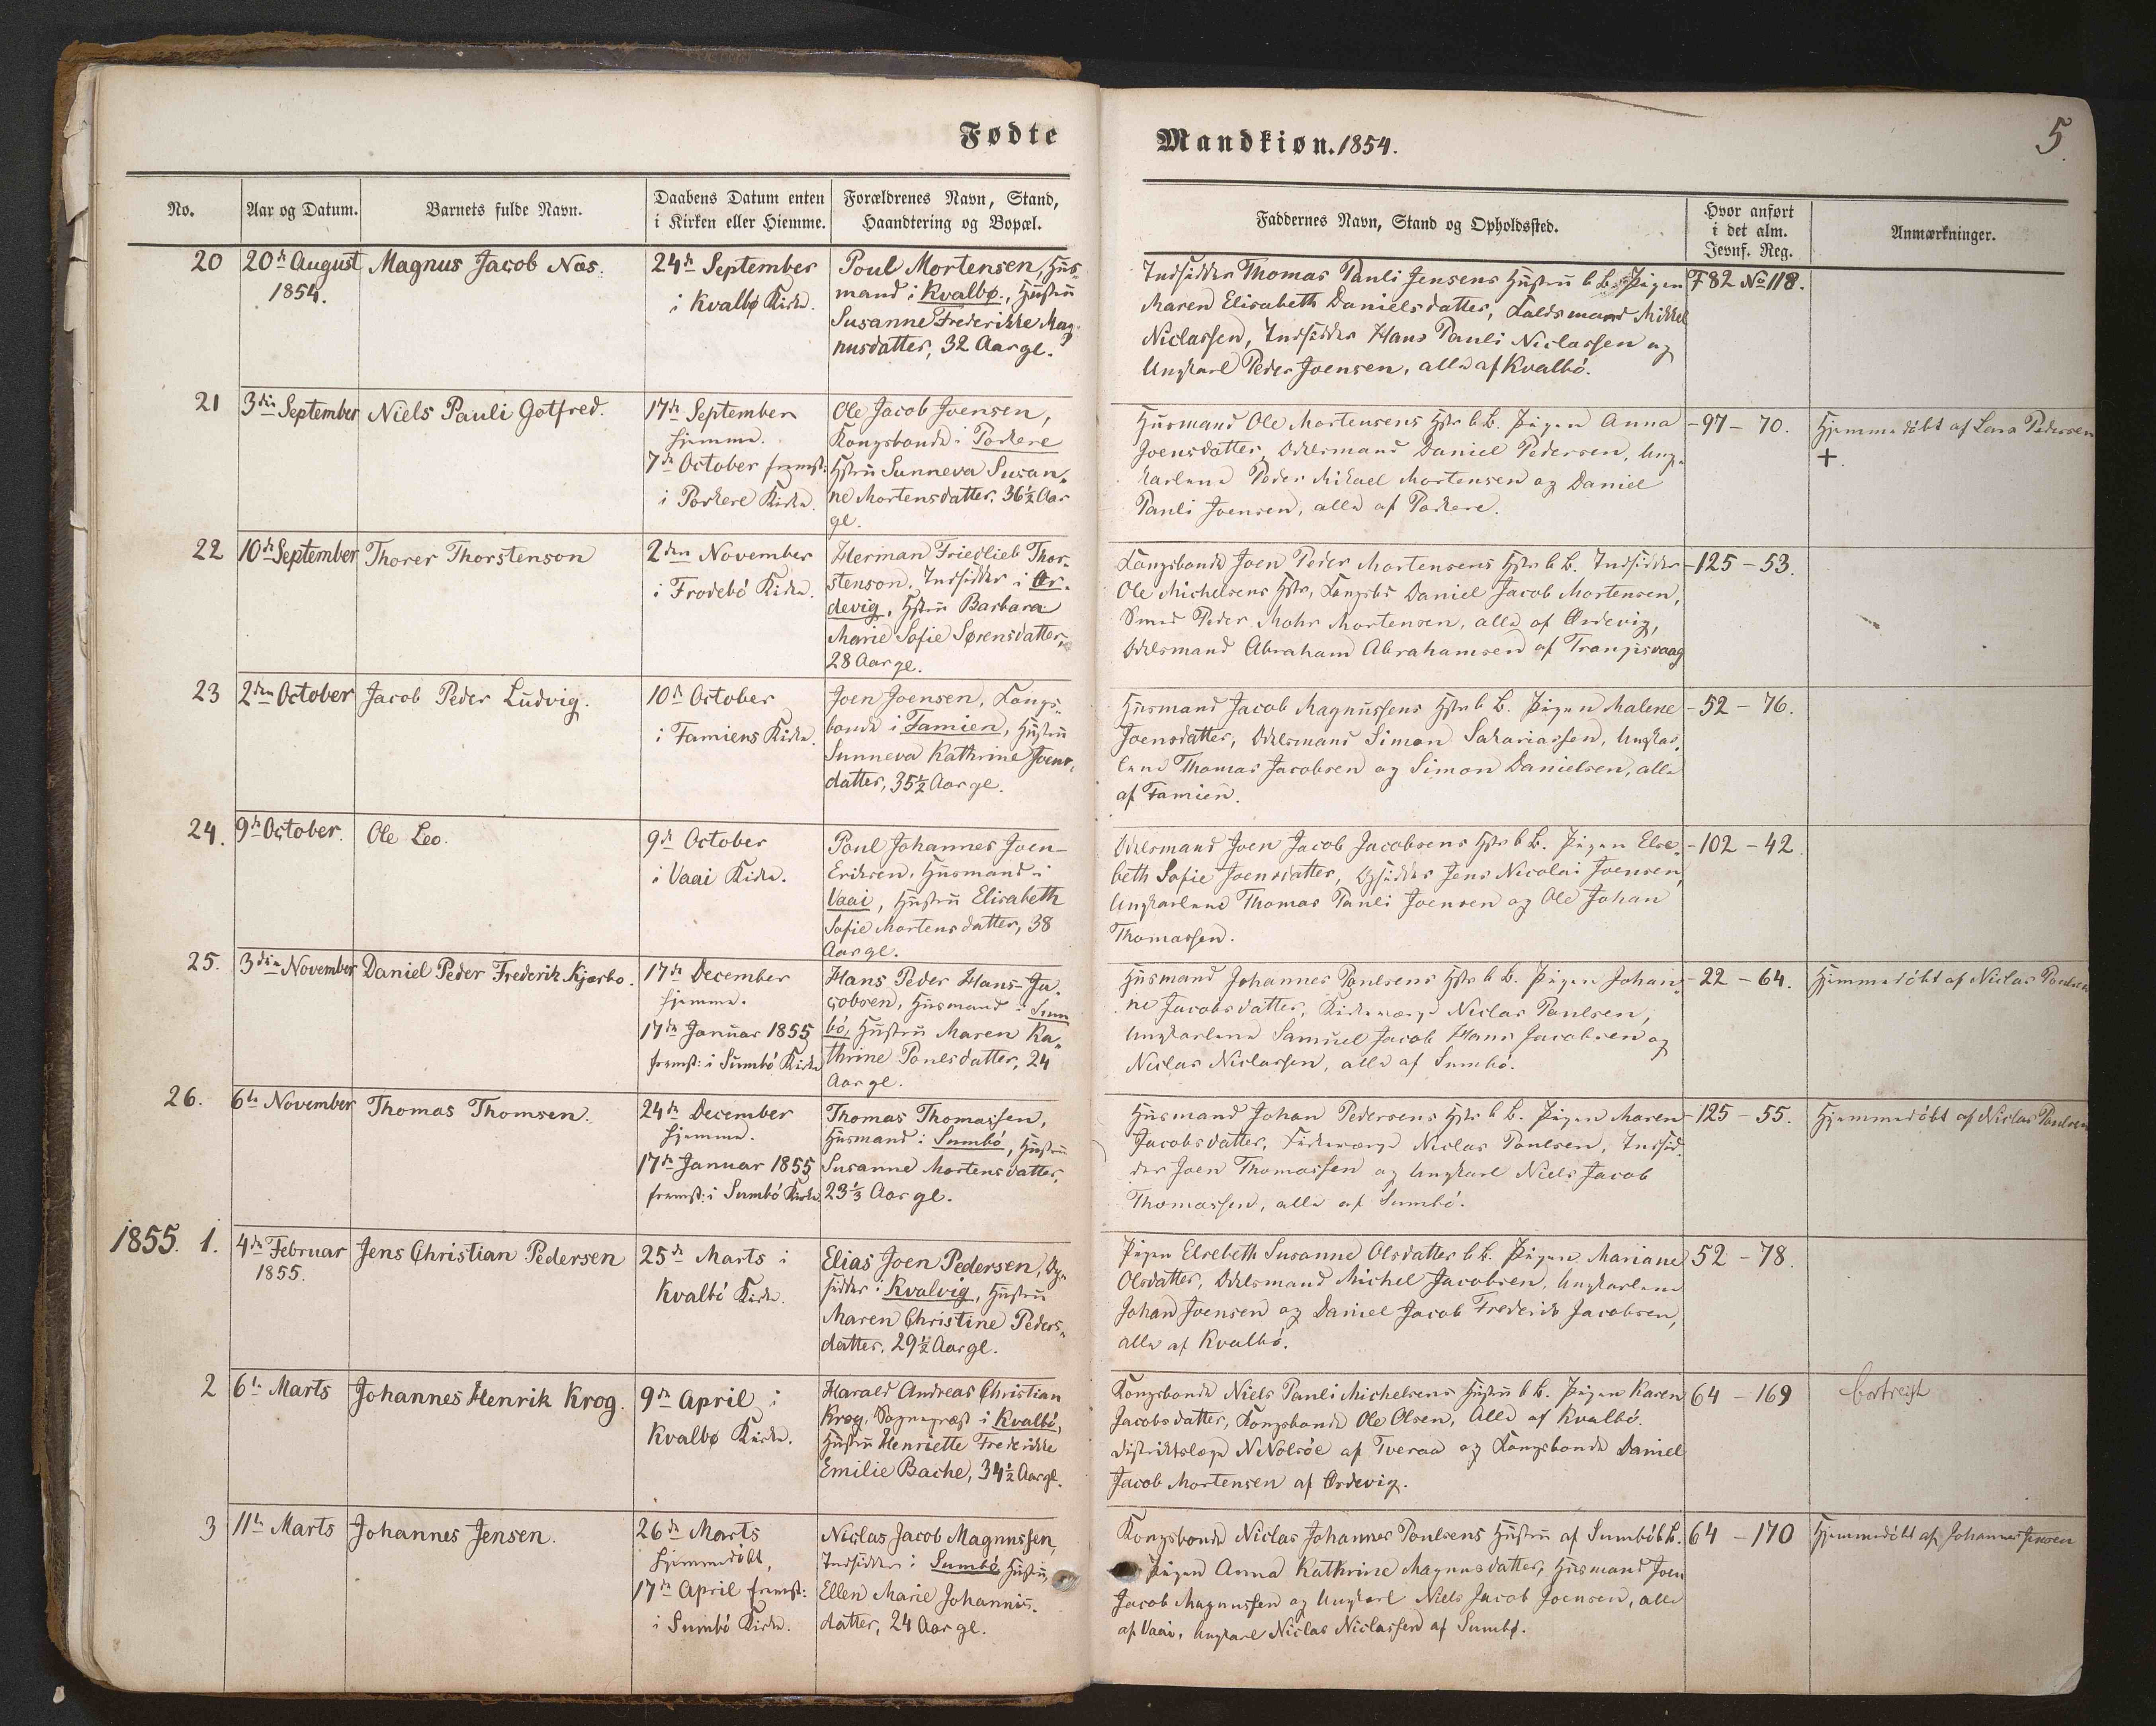 Fødte
Mandkiøn. 1854.
5.
No.
Aar og Datum.
Barnets fulde Navn.
Daabens Datum enten
i Kirken eller Hiemme.
Forældrenes Navn, Stand,
Haandtering og Bopæl.
Faddernes Navn, Stand og Opholdssted.
Hvor anført
i det alm.
Jevnf. Reg.
Anmærkninger.
20
20de August
1854.
Magnus Jacob Næs.
24de September
i Kvalbø Kirke.
Poul Mortensen, Hus-
mand i Kvalbø, Hustru
Susanne Frederikke Mag-
nusdatter, 32 Aar gl.
Indsidder Thomas Pauli Jensens Hustru b. B. Pigen
Maren Elisabeth Danielsdatter, Mikkel
Niclassen, Indsidder Hans Pauli Niclassen og
Ungkarl Peder Joensen, alle af Kvalbó.
F 82 No 118.
21
3die September
Niels Pauli Gotfred.
17de September
hjemme.
7de October fremst:
i Porkere Kirke.
Ole Jacob Joensen,
Kongsbonde i Porkere
Hstru Sunneva Susan-
ne Mortensdatter, 36½ Aar
gl.
Husmand Ole Mortensens Hstr b. B. Pigen Anna
Joensdatter, Odelsmand Daniel Pedersen, Ung-
karlene Peder Mikael Mortensen og Daniel
Pauli Joensen, alle af Porkere.
- 97 - 70.
Hjemmedöbt af Lena Pedersen
+.
22
10de September
Thorer Thorstenson
2den November
i Frodebó Kirke.
Herman Friedlieb Thor-
stenson, Indsidder i Ør-
devig, Hstru Barbara
Marie Sofie Sørensdatter,
28 Aar gl.
Kongsbonde Joen Peder Mortensens Hstr b. B. Indsidder
Ole Michelsens Hstr, Kongsbd Daniel Jacob Mortensen,
Smed Peder Mohr Mortensen, alle af Ørdevig,
Odelsmand Abraham Abrahamsen af Trangisvaag
- 125 - 53.
23
2den October
Jacob Peder Ludvig.
10de October
i Famiens Kirke.
Joen Joensen, Kongs-
bonde i Famien, Hustru
Sunneva Kathrine Joens-
datter, 35½ Aar gl.
Husmand Jacob Magnussens Hstr b. B. Pigen Malene
Joensdatter, Odelsmand Simon Sakariassen, Ungkar-
lene Thomas Jacobsen og Simon Danielsen, alle
af Famien.
- 52 - 76.
24.
9de October.
Ole Leo.
9de October
i Vaai Kirke.
Poul Johannes Joen-
Eriksen, Husmand i
Vaai, Hustru Elisabeth
Sofie Mortensdatter, 38
Aar gl.
Odelsmand Joen Jacob Jacobsens Hstr b. B. Pigen Else-
beth Sofie Joensdatter, Opsidder Jens Nicolai Joensen,
Ungkarlene Thomas Pauli Joensen og Ole Johan
Thomassen.
- 102 - 42.
25.
3die November
Daniel Peder Frederik Kjærbo.
17de December
hjemme.
17de Januar 1855
fremst: i Sumbó Kirke
Hans Peder Hans-Ja-
cobsen, Husmand i Sum
bó, Hustru Maren Ka-
thrine Poulsdatter, 24
Aar gl.
Husmand Johannes Poulsens Hstr b. B. Pigen Johan-
ne Jacobsdatter, Kirkeværge Niclas Poulsen,
Ungkarlene Samuel Jacob Hans Jacobsen og
Niclas Niclassen, alle af Sumbó.
- 22 - 64.
Hjemmedóbt af Niclas Poulsen
26.
6te November
Thomas Thomsen.
24de December
hjemme.
17de Januar 1855
fremst: i Sumbó Kirke
Thomas Thomassen,
Husmand i Sumbó, Hustru
Susanne Mortensdatter,
23⅓ Aar gl.
Husmand Johan Pedersens Hstr b. B. Pigen Maren
Jacobsdatter, Kirkeværge Niclas Poulsen, Indsid-
der Joen Thomassen og Ungkarl Niels Jacob
Thomassen, alle af Sumbó.
- 125 - 55.
Hjemmedóbt af Niclas Poulsen
1855. 1.
4de Februar
1855.
Jens Christian Pedersen
25de Marts i
Kvalbó Kirke.
Elias Joen Pedersen, Op-
sidder i Kvalvig, Hustru
Maren Christine Peders-
datter, 29½ Aar gl.
Pigen Elsebeth Susanne Olsdatter b. B. Pigen Mariane
Olsdatter, Odelsmand Michel Jacobsen, Ungkarlene
Johan Joensen og Daniel Jacob Frederik Jacobsen,
alle af Kvalbó.
52 - 78.
2
6te Marts
Johannes Henrik Krog.
9de April i
Kvalbø Kirke.
Harald Andreas Christian
Krog, Sognepræst i Kvalbó,
Hustru Henriette Frederikke
Emilie Bache, 34½ Aar gl.
Kongsbonde Niels Pauli Michelsens Hustru b. B. Pigen Karen
Jacobsdatter, Kongsbonde Ole Olsen, Alle af Kvalbó.
Distriktslæge N Nolsöe af Tveraa og Kongsbonde Daniel
Jacob Mortensen af Ørdevig.
64 - 169
bortreist
3
11te Marts
Johannes Jensen.
26de Marts
hjemmedöbt,
17de April fremst:
i Sumbó Kirke.
Niclas Jacob Magnussen,
Indsidder i Sumbó, Hustru
Ellen Marie Johannis-
datter, 24 Aar gl.
Kongsbonde Niclas Johannes Poulsens Hustru af Sumbó b. B.
Pigen Anna Kathrine Magnusdatter, Husmand Joen
Jacob Magnussen og Ungkarl Niels Jacob Joensen, alle
af Vaai, Ungkarl Niclas Niclassen af Sumbø.
64 - 170
Hjemmedöbt af Johannes Jensen